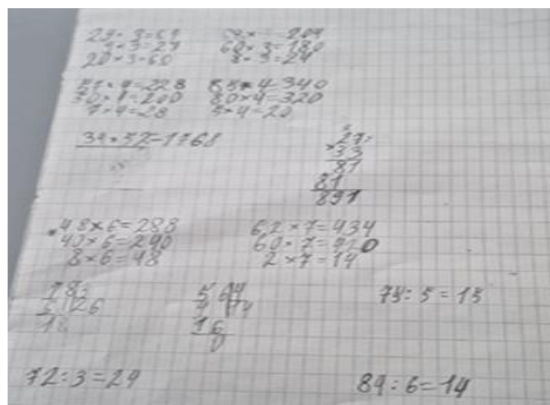 9×3=27
20×3=60
60×3=180
8×3=24
57×4=228
50×4=200
7×4=28
85×4=340
80×4=320
5×4=20
34×52=1768
27
×33
81
81
891
48×6=288
40×6=240
8×6=48
62×7=434
60×7=420
2×7=14
75:5=15
72:3=24
84:6=14